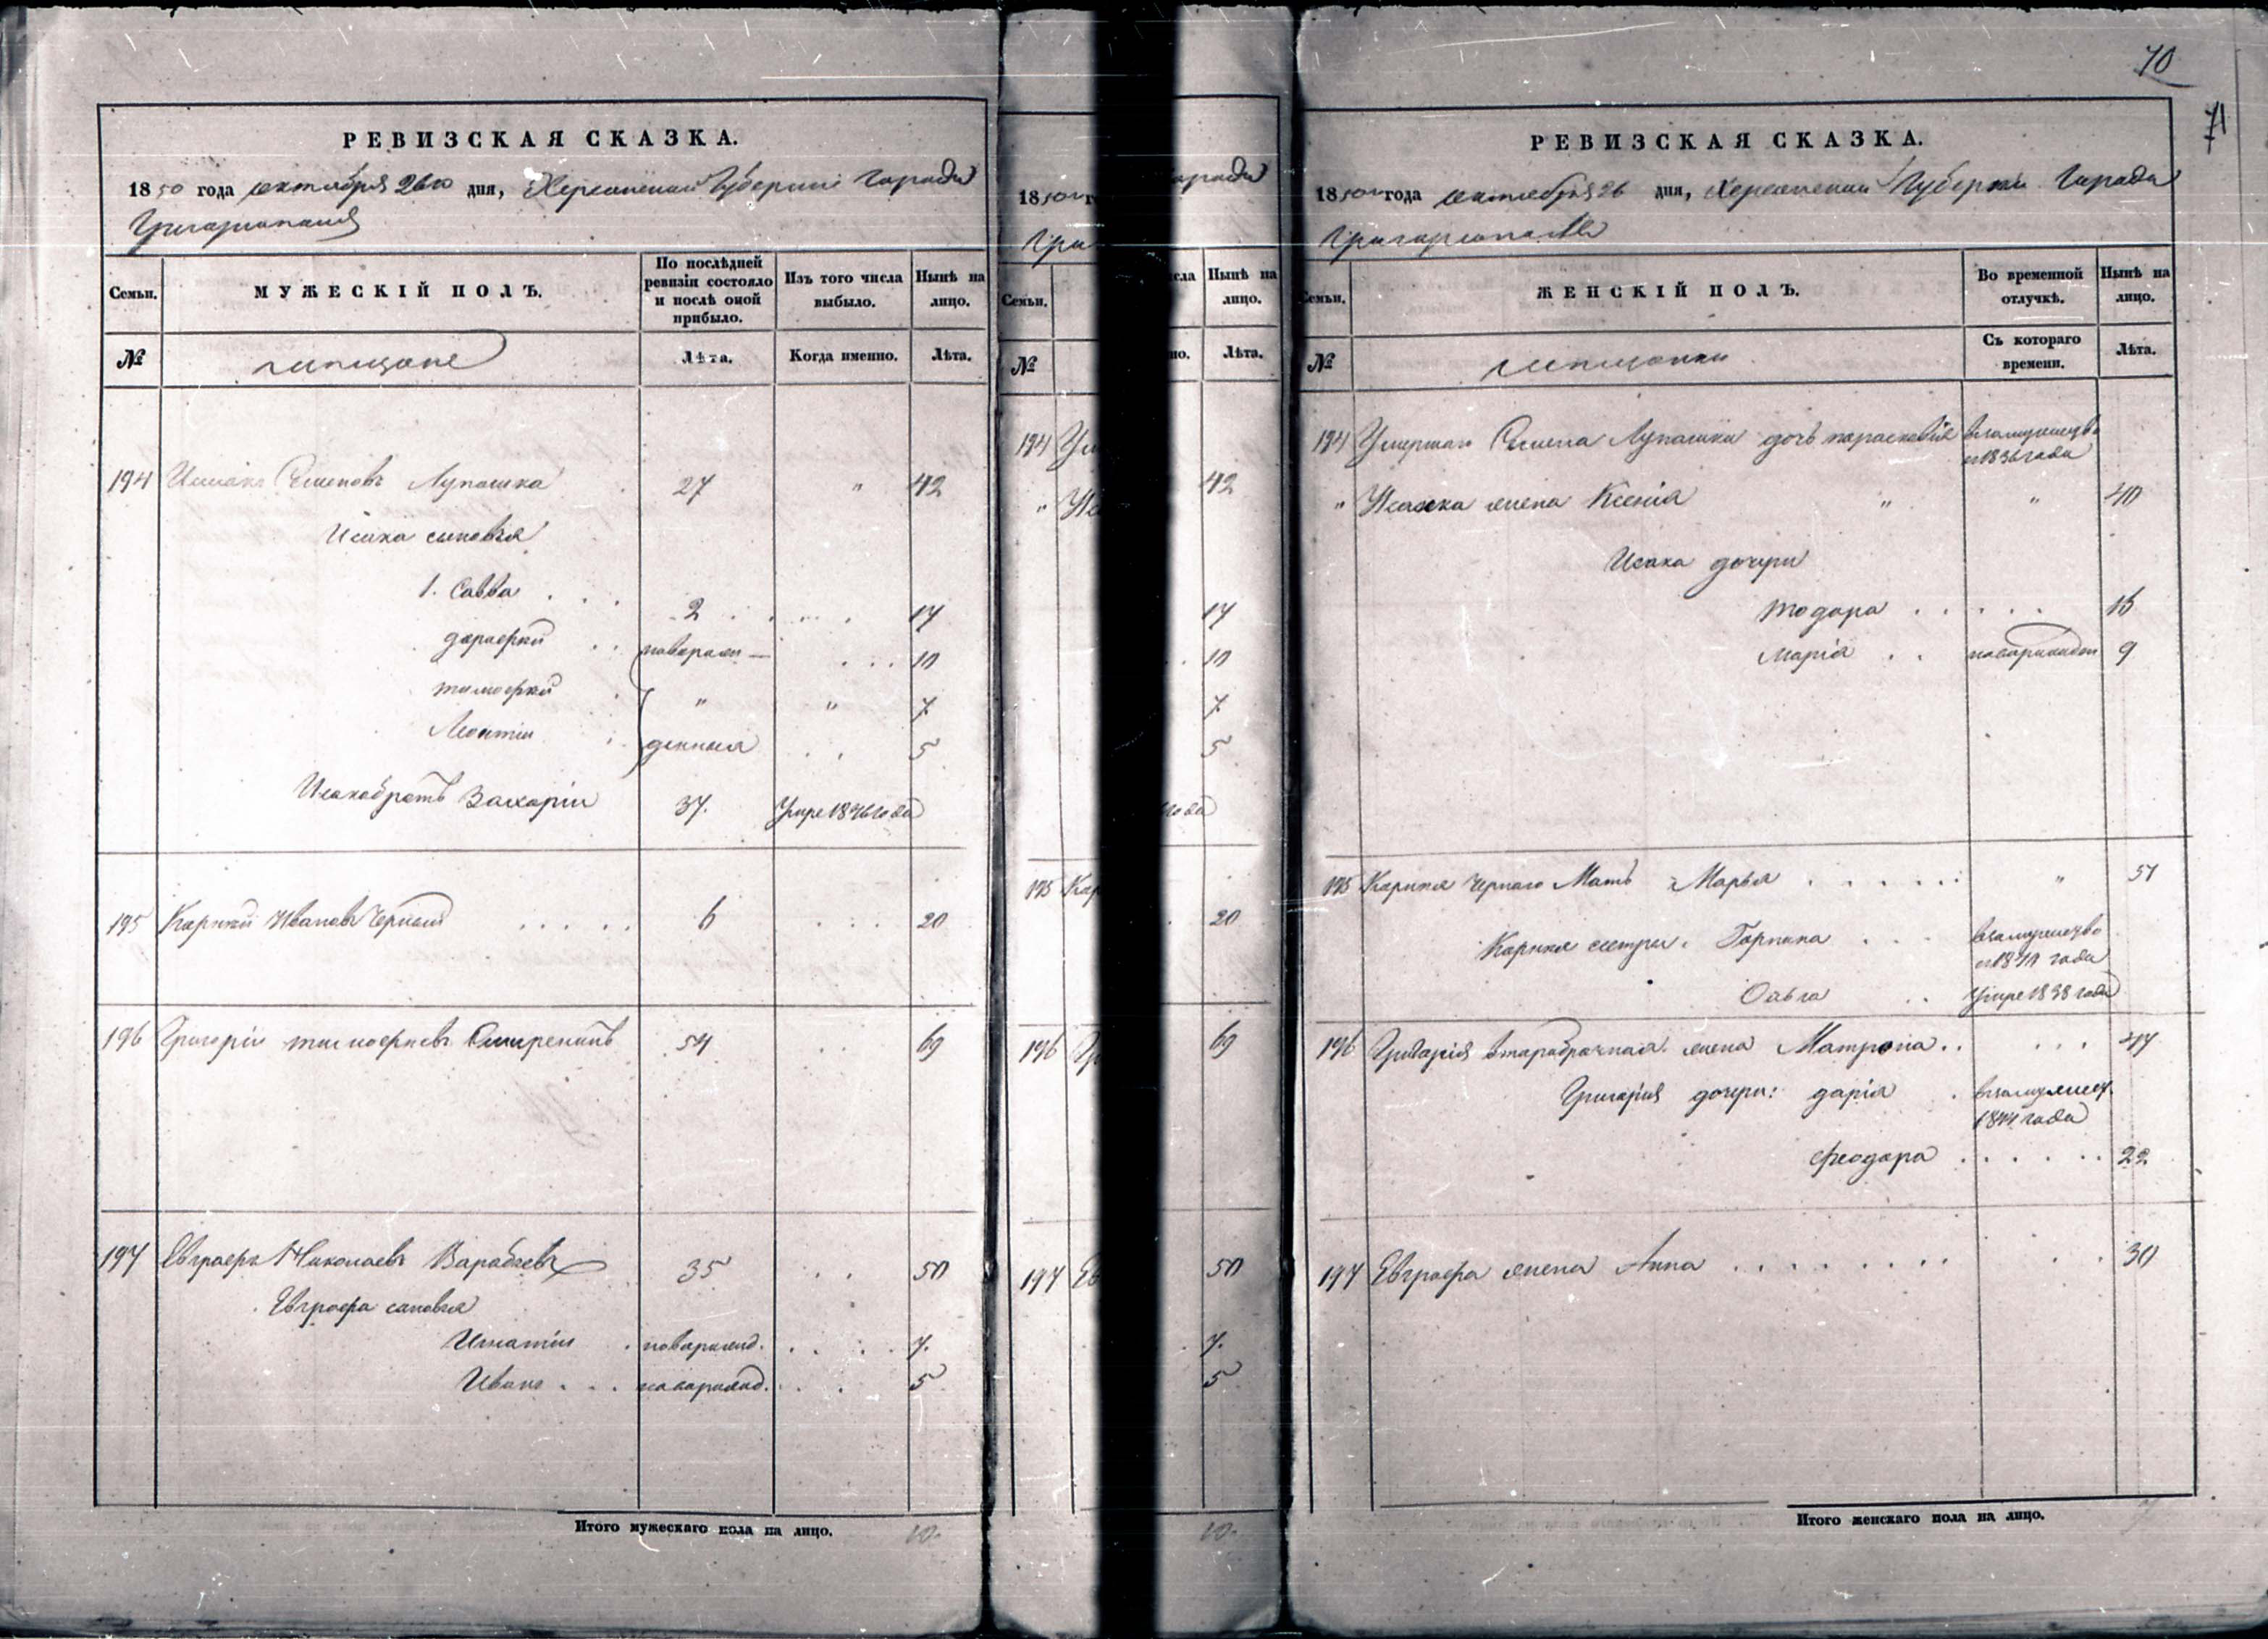 РЕВИЗСКАЯ СКАЗКА.
1850 года октября 26го дня, Херсонской Губернии города
Григориополя
Семьи.
МУЖЕСКІЙ ПОЛЪ.
По послѣдней ревизіи состояло и послѣ оной прибыло.
Изъ того числа выбыло.
Нынѣ на лицо.
№
мещане
Лѣта.
Когда именно.
Лѣта.
194 Семеновъ Лупашка 27 " 42
Исака сыновья
1. Савва . . . 2 . . . . 14
10
" " 7
Леонтій 5
Исака братъ Захарій 37. Умре 1846 года
195 Карпъ Ивановъ Черный . . . . . 6 . . . 20
196 Григорій Тимофеевъ 54 . . 69
197 Евграфъ Николаевъ Варабаевъ 35 . . 50
Евграфа сыновья
Игнатій . новорожд. . . . . 7.
Иванъ . . . новорожд. . . . 5
Итого мужескаго пола на лицо. 10.
1850
Гри
Семьи.
Нынѣ на лицо.
№
Лѣта.
194
42
14
10
7
5
года
195 Кар 20
196 Гр 69
197 Ев 50
7.
5
10.
70
71
РЕВИЗСКАЯ СКАЗКА.
1850 года октября 26 дня, Херсонской Губерніи города
Григориополя
Семьи.
ЖЕНСКІЙ ПОЛЪ.
Во временной отлучкѣ.
Нынѣ на лицо.
№
мещанки
Съ котораго времени.
Лѣта.
194 Умершаго Семена Лупашки дочь Параскевія взамужество
с 1836 года
" Исаака жена Ксенія " " 40
Исака дочери
Тодора . . . . . 16
Марія . . новорожден 9
195 Карпа Чернаго Мать Марья . . . . . . " 51
Карпа сестры. Горпина . . . взамужество
года
Ольга . . Умре 1838 года
196 Григорія второбрачная жена Матрона . . . . . 44
Григорія дочери: Дарія . взамужест.
1844 года
Феодора . . . . . . 22
197 Евграфа жена Анна . . . . . . . . . . 30
Итого женскаго пола на лицо. 7